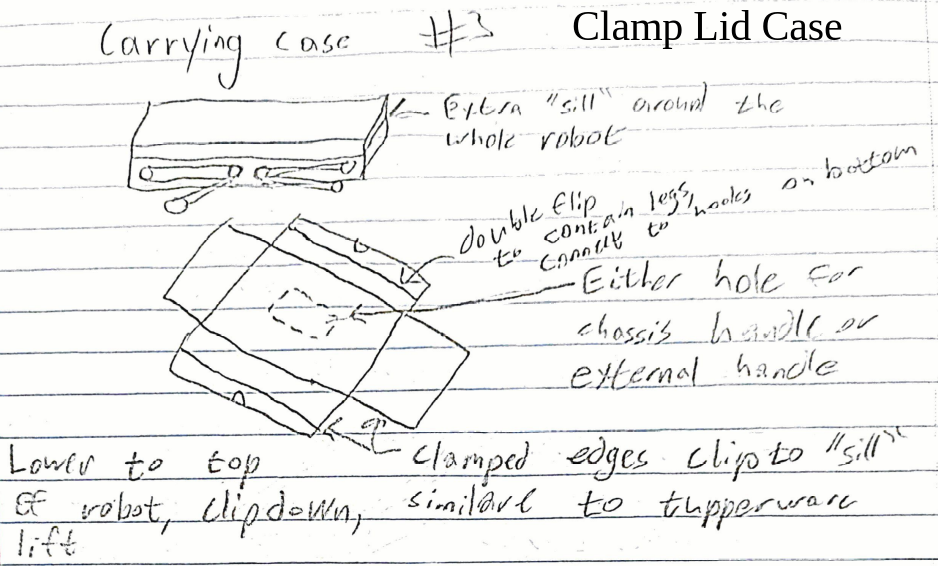 Carrying case #3
Clamp Lid Case
Extra "sill" around the
whole robot
double flip
to contain legs,
connect to hooks on bottom
Either hole for
chassis handle or
external handle
Clamped edges clip to "sill"
Lower to top
of robot, clipdown, similare to tupperware
lift